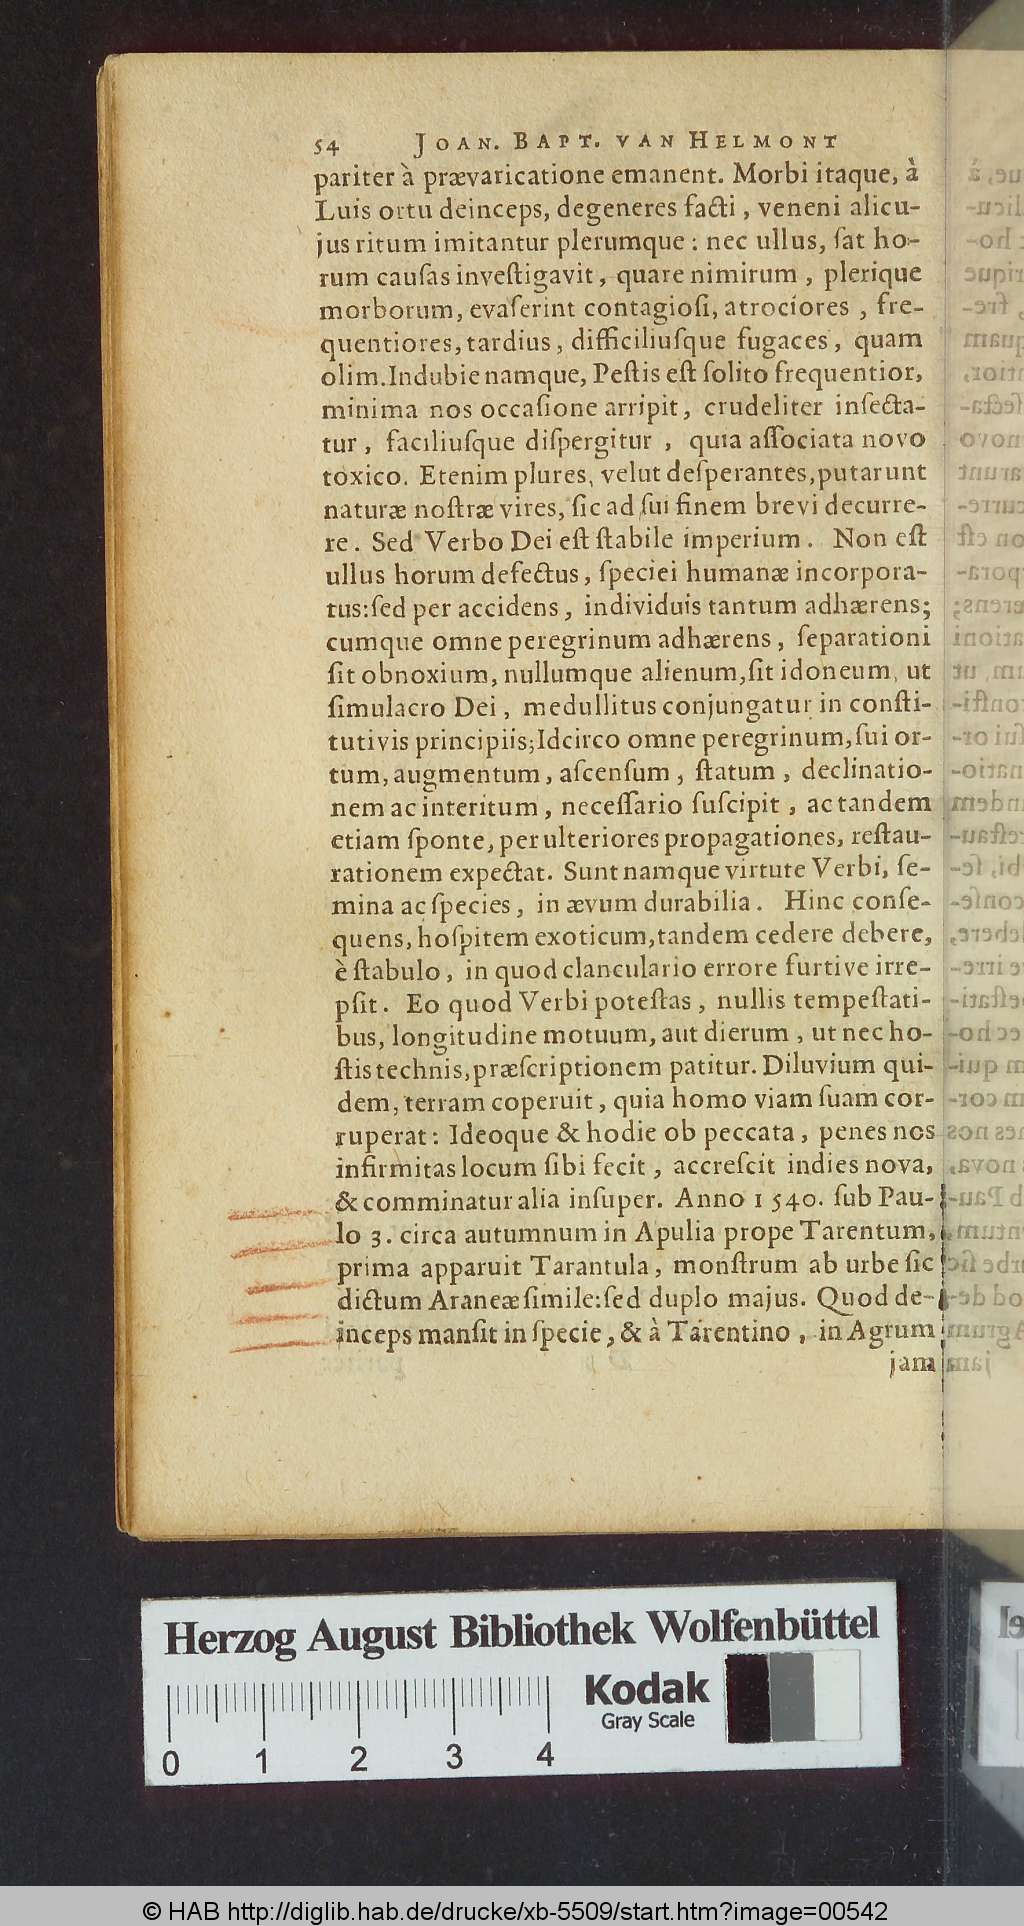 54 JOAN. BAPT. VAN HELMONT
pariter à prævaricatione emanent. Morbi itaque, à
Luis ortu deinceps, degeneres facti, veneni alicu-
jus ritum imitantur plerumque: nec ullus, ſat ho-
rum cauſas inveſtigavit, quare nimirum, plerique
morborum, evaſerint contagioſi, atrociores, fre-
quentiores, tardius, difficiliuſque fugaces, quam
olim. Indubie namque, Peſtis eſt ſolito frequentior,
minima nos occaſione arripit, crudeliter inſecta-
tur, faciliuſque diſpergitur, quia aſſociata novo
toxico. Etenim plures, velut deſperantes, putarunt
naturæ noſtræ vires, ſic ad ſui finem brevi decurre-
re. Sed Verbo Dei eſt ſtabile imperium. Non eſt
ullus horum defectus, ſpeciei humanæ incorpora-
tus: ſed per accidens, individuis tantum adhærens;
cumque omne peregrinum adhærens, ſeparationi
ſit obnoxium, nullumque alienum, ſit idoneum, ut
ſimulacro Dei, medullitus conjungatur in conſti-
tutivis principiis; Idcirco omne peregrinum, ſui or-
tum, augmentum, aſcenſum, ſtatum, declinatio-
nem ac interitum, neceſſario ſuſcipit, ac tandem
etiam ſponte, per ulteriores propagationes, reſtau-
rationem expectat. Sunt namque virtute Verbi, ſe-
mina ac ſpecies, in ævum durabilia. Hinc conſe-
quens, hoſpitem exoticum, tandem cedere debere,
è ſtabulo, in quod clanculario errore furtive irre-
pſit. Eo quod Verbi poteſtas, nullis tempeſtati-
bus, longitudine motuum, aut dierum, ut nec ho-
ſtis technis, præſcriptionem patitur. Diluvium qui-
dem, terram coperuit, quia homo viam ſuam cor-
ruperat: Ideoque & hodie ob peccata, penes nos
infirmitas locum ſibi fecit, accreſcit indies nova,
& comminatur alia inſuper. Anno 1540. ſub Pau-
lo 3. circa autumnum in Apulia prope Tarentum,
prima apparuit Tarantula, monſtrum ab urbe ſic
dictum Araneæ ſimile: ſed duplo majus. Quod de-
inceps manſit in ſpecie, & à Tarentino, in Agrum
jam
Herzog August Bibliothek Wolfenbüttel
Kodak
Gray Scale
0 1 2 3 4
© HAB http://diglib.hab.de/drucke/xb-5509/start.htm?image=00542